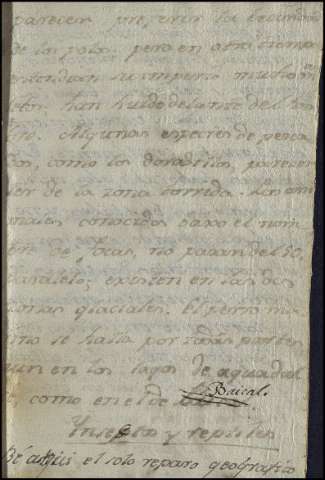 parecen preferir la cercanía
de los polos. pero en otro tiempo
extendian su imperio mucho m
han huido delante del hom
bre. Algunas especies de pesca
dos, como los doradillos, parecen
ser de la zona torrida. Los ani
males conocidos baxo el nom
bre de focas, no pasan del 50.
paralelo; existen en las dos
zonas glaciales. El perro ma
rino se halla por todas partes
aun en los lagos de agua dul
ce, como en el de Baical.
Insectos y reptiles
He aqui el solo reparo geografico